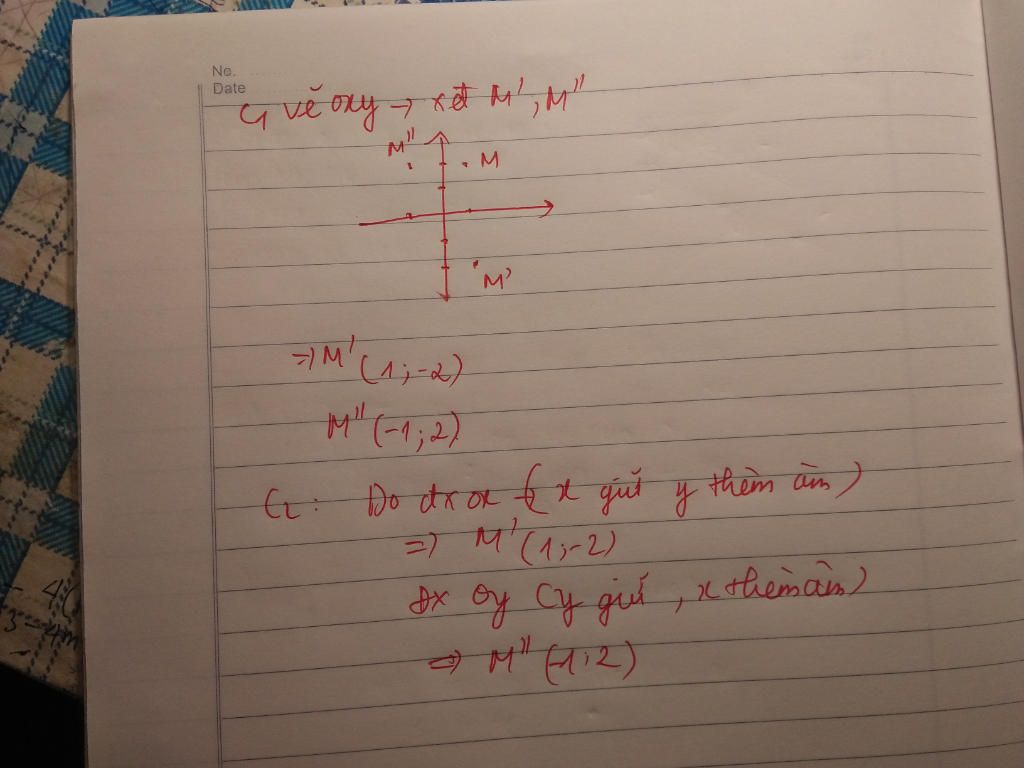 No.
Date
C1 vẽ oxy → xét M', M''
M'' M
M'
=> M' (1;-2)
M'' (-1;2)
C2: Do đx ox ( x giữ y thêm âm)
=> M' (1;-2)
Đx Oy (y giữ, x thêm âm)
=> M'' (-1;2)